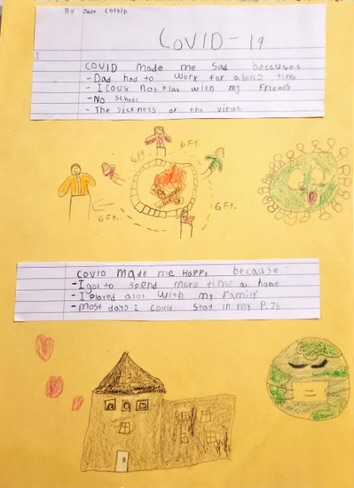 By Jase
COVID-19
COVID made me Sad because
- Dad has to work for along time
- I Coud not Play with my friends
- No school
- The sickness of the virus
6ft.
6ft.
6ft.
6ft.
COVID made me Happy because:
- I got to spend more time at home
- I Played alot with my family
- Most days I could stay in my P.Js